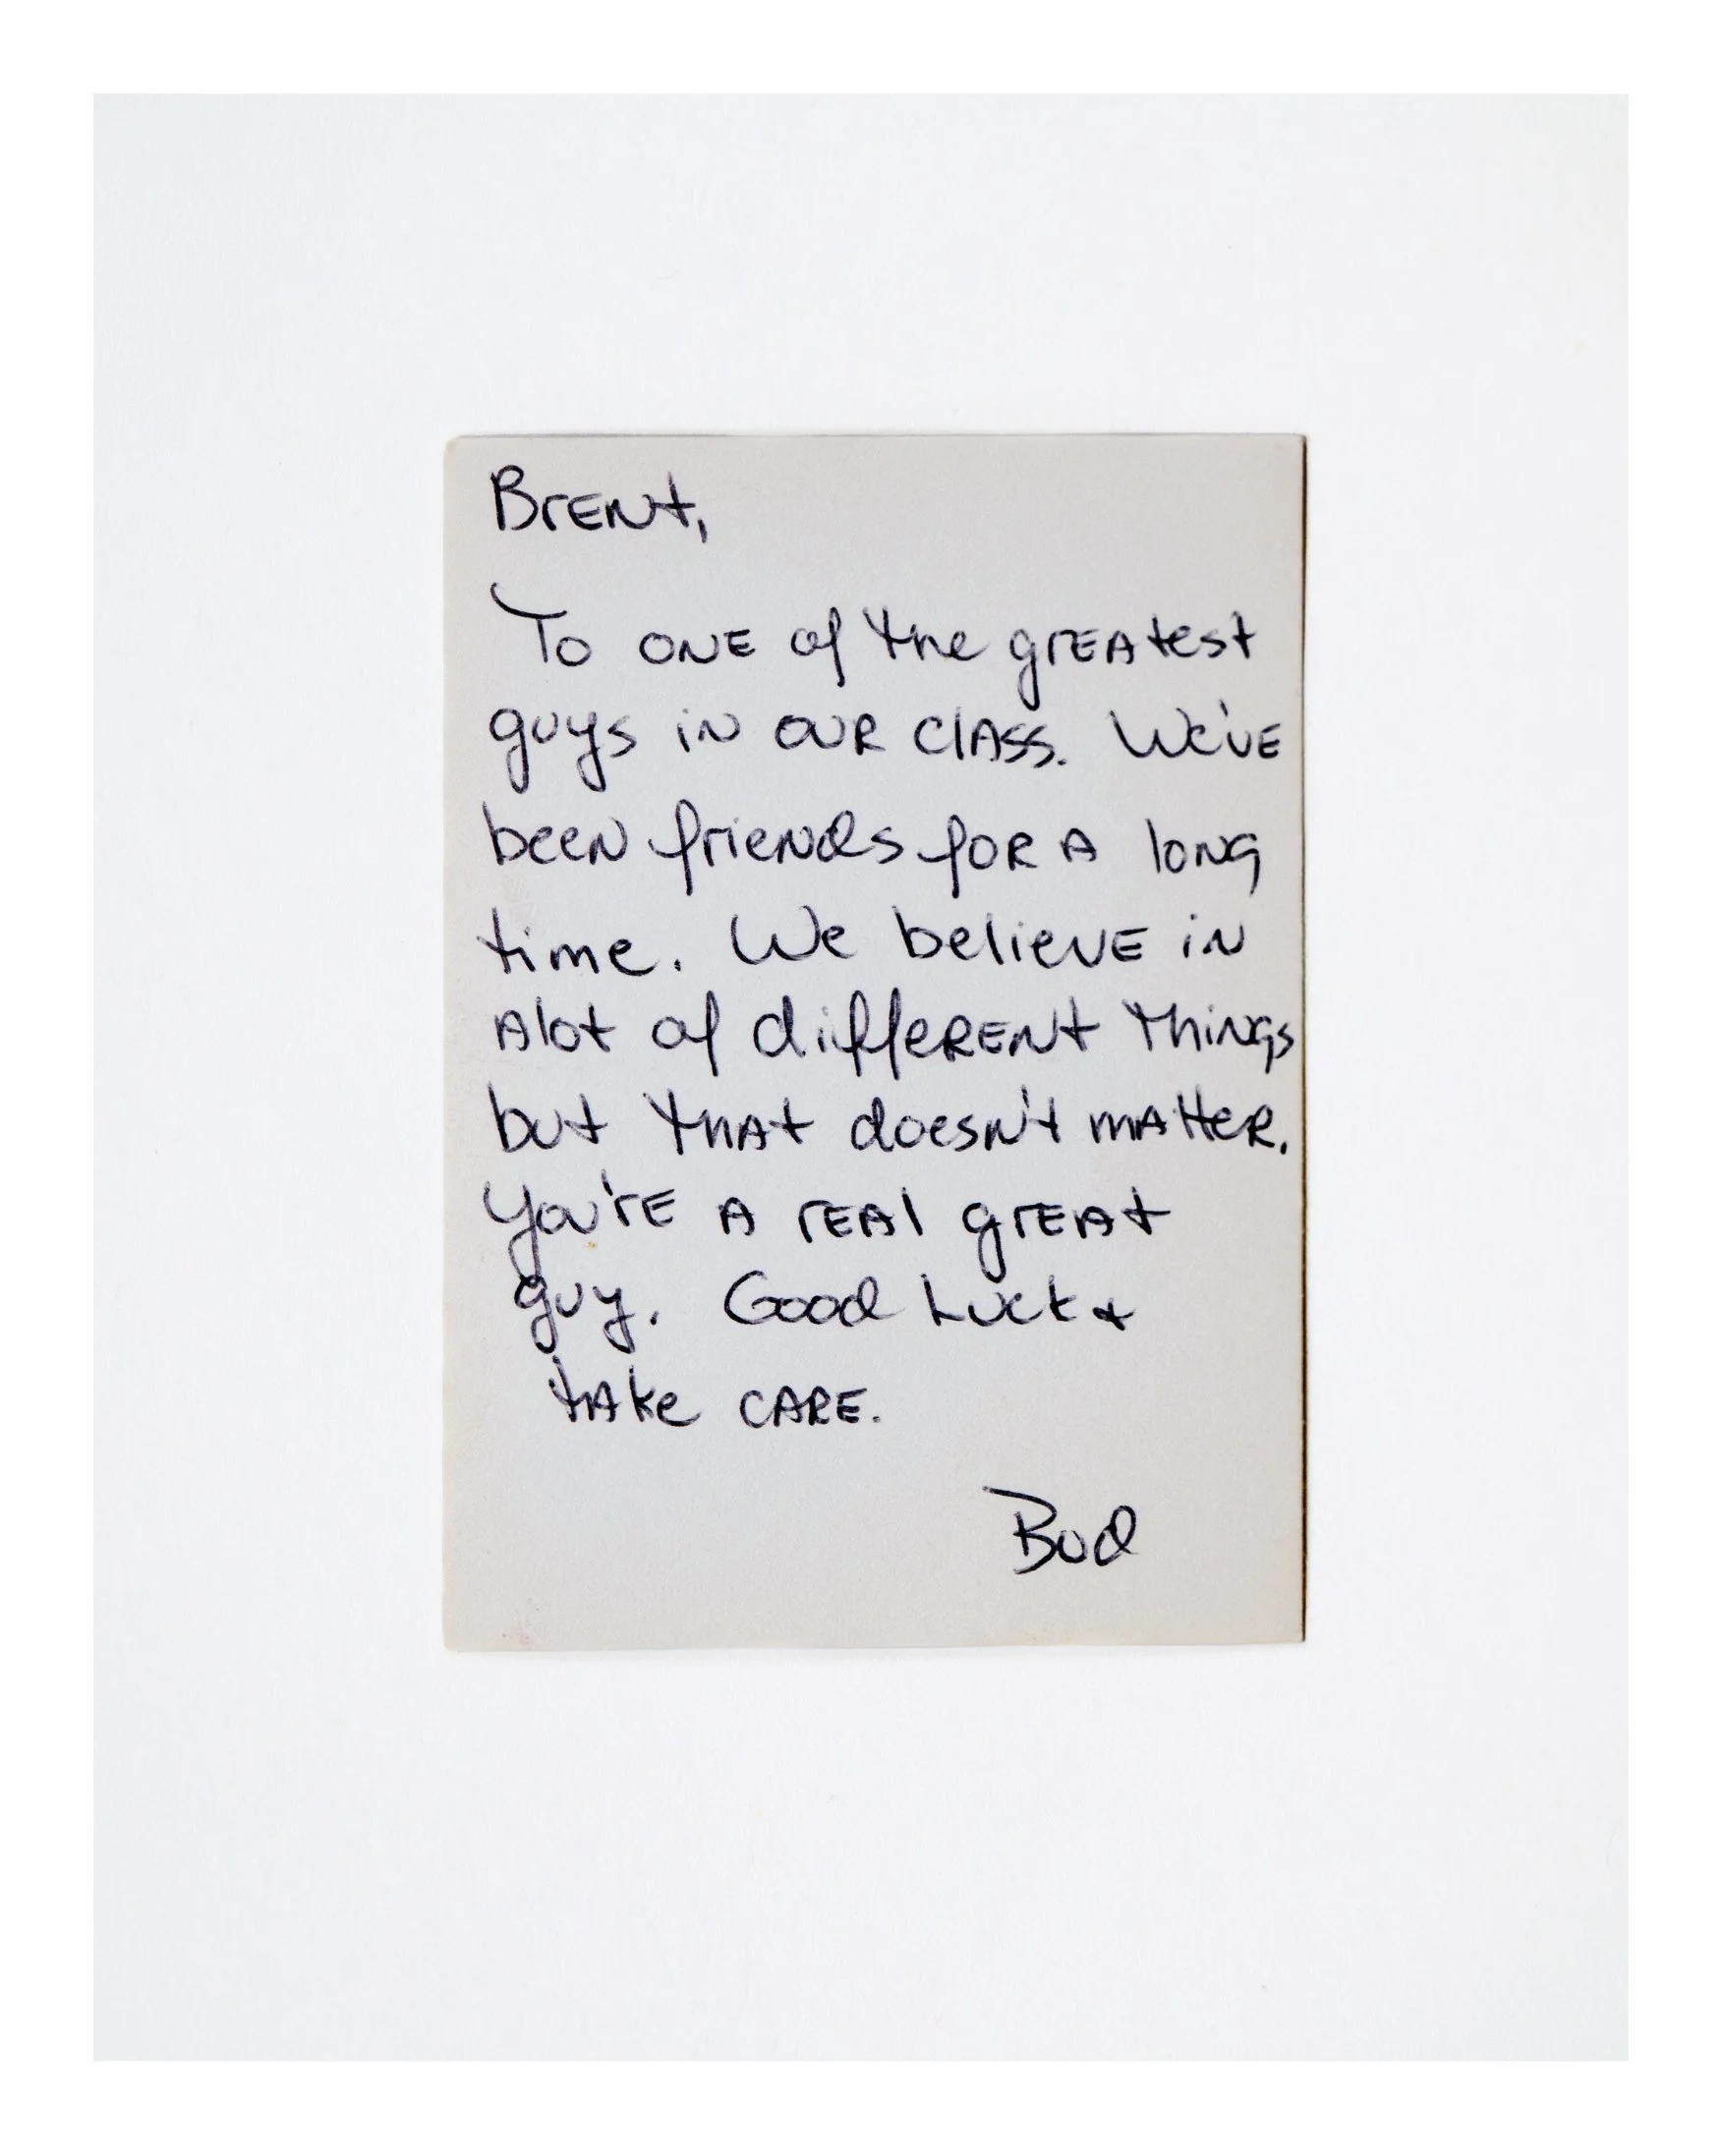 Brent,
To one of the greatest
guys in our class. We've
been friends for a long
time. We believe in
alot of different things
but that doesn't matter.
You're a real great
guy. Good Luck &
take care.
Bud